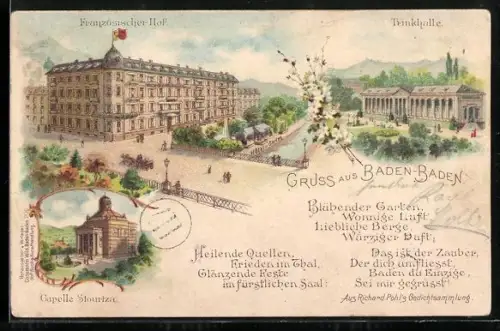 Französischer Hof.
Trinkhalle.
GRUSS AUS BADEN-BADEN
Blühender Garten,
Wonnige Luft,
Liebliche Berge,
Würziger Duft;
Heilende Quellen,
Frieden im Thal,
Glänzende Feste
im fürstlichen Saal:
Das ist der Zauber,
Der dich umfliesst,
Baden du Einzige,
Sei mir gegrüsst!
Aus Richard Pohl's Gedichtsammlung.
Capelle Stourtza.